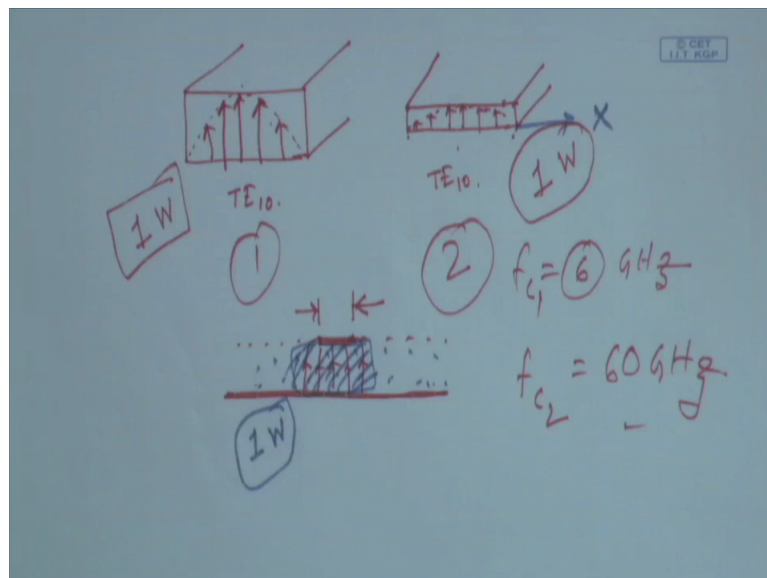 © CET
I.I.T. KGP
X
1 W
TE10.
TE10.
1 W
1
2
fc1 = 6 GHz
fc2 = 60 GHz
1 W